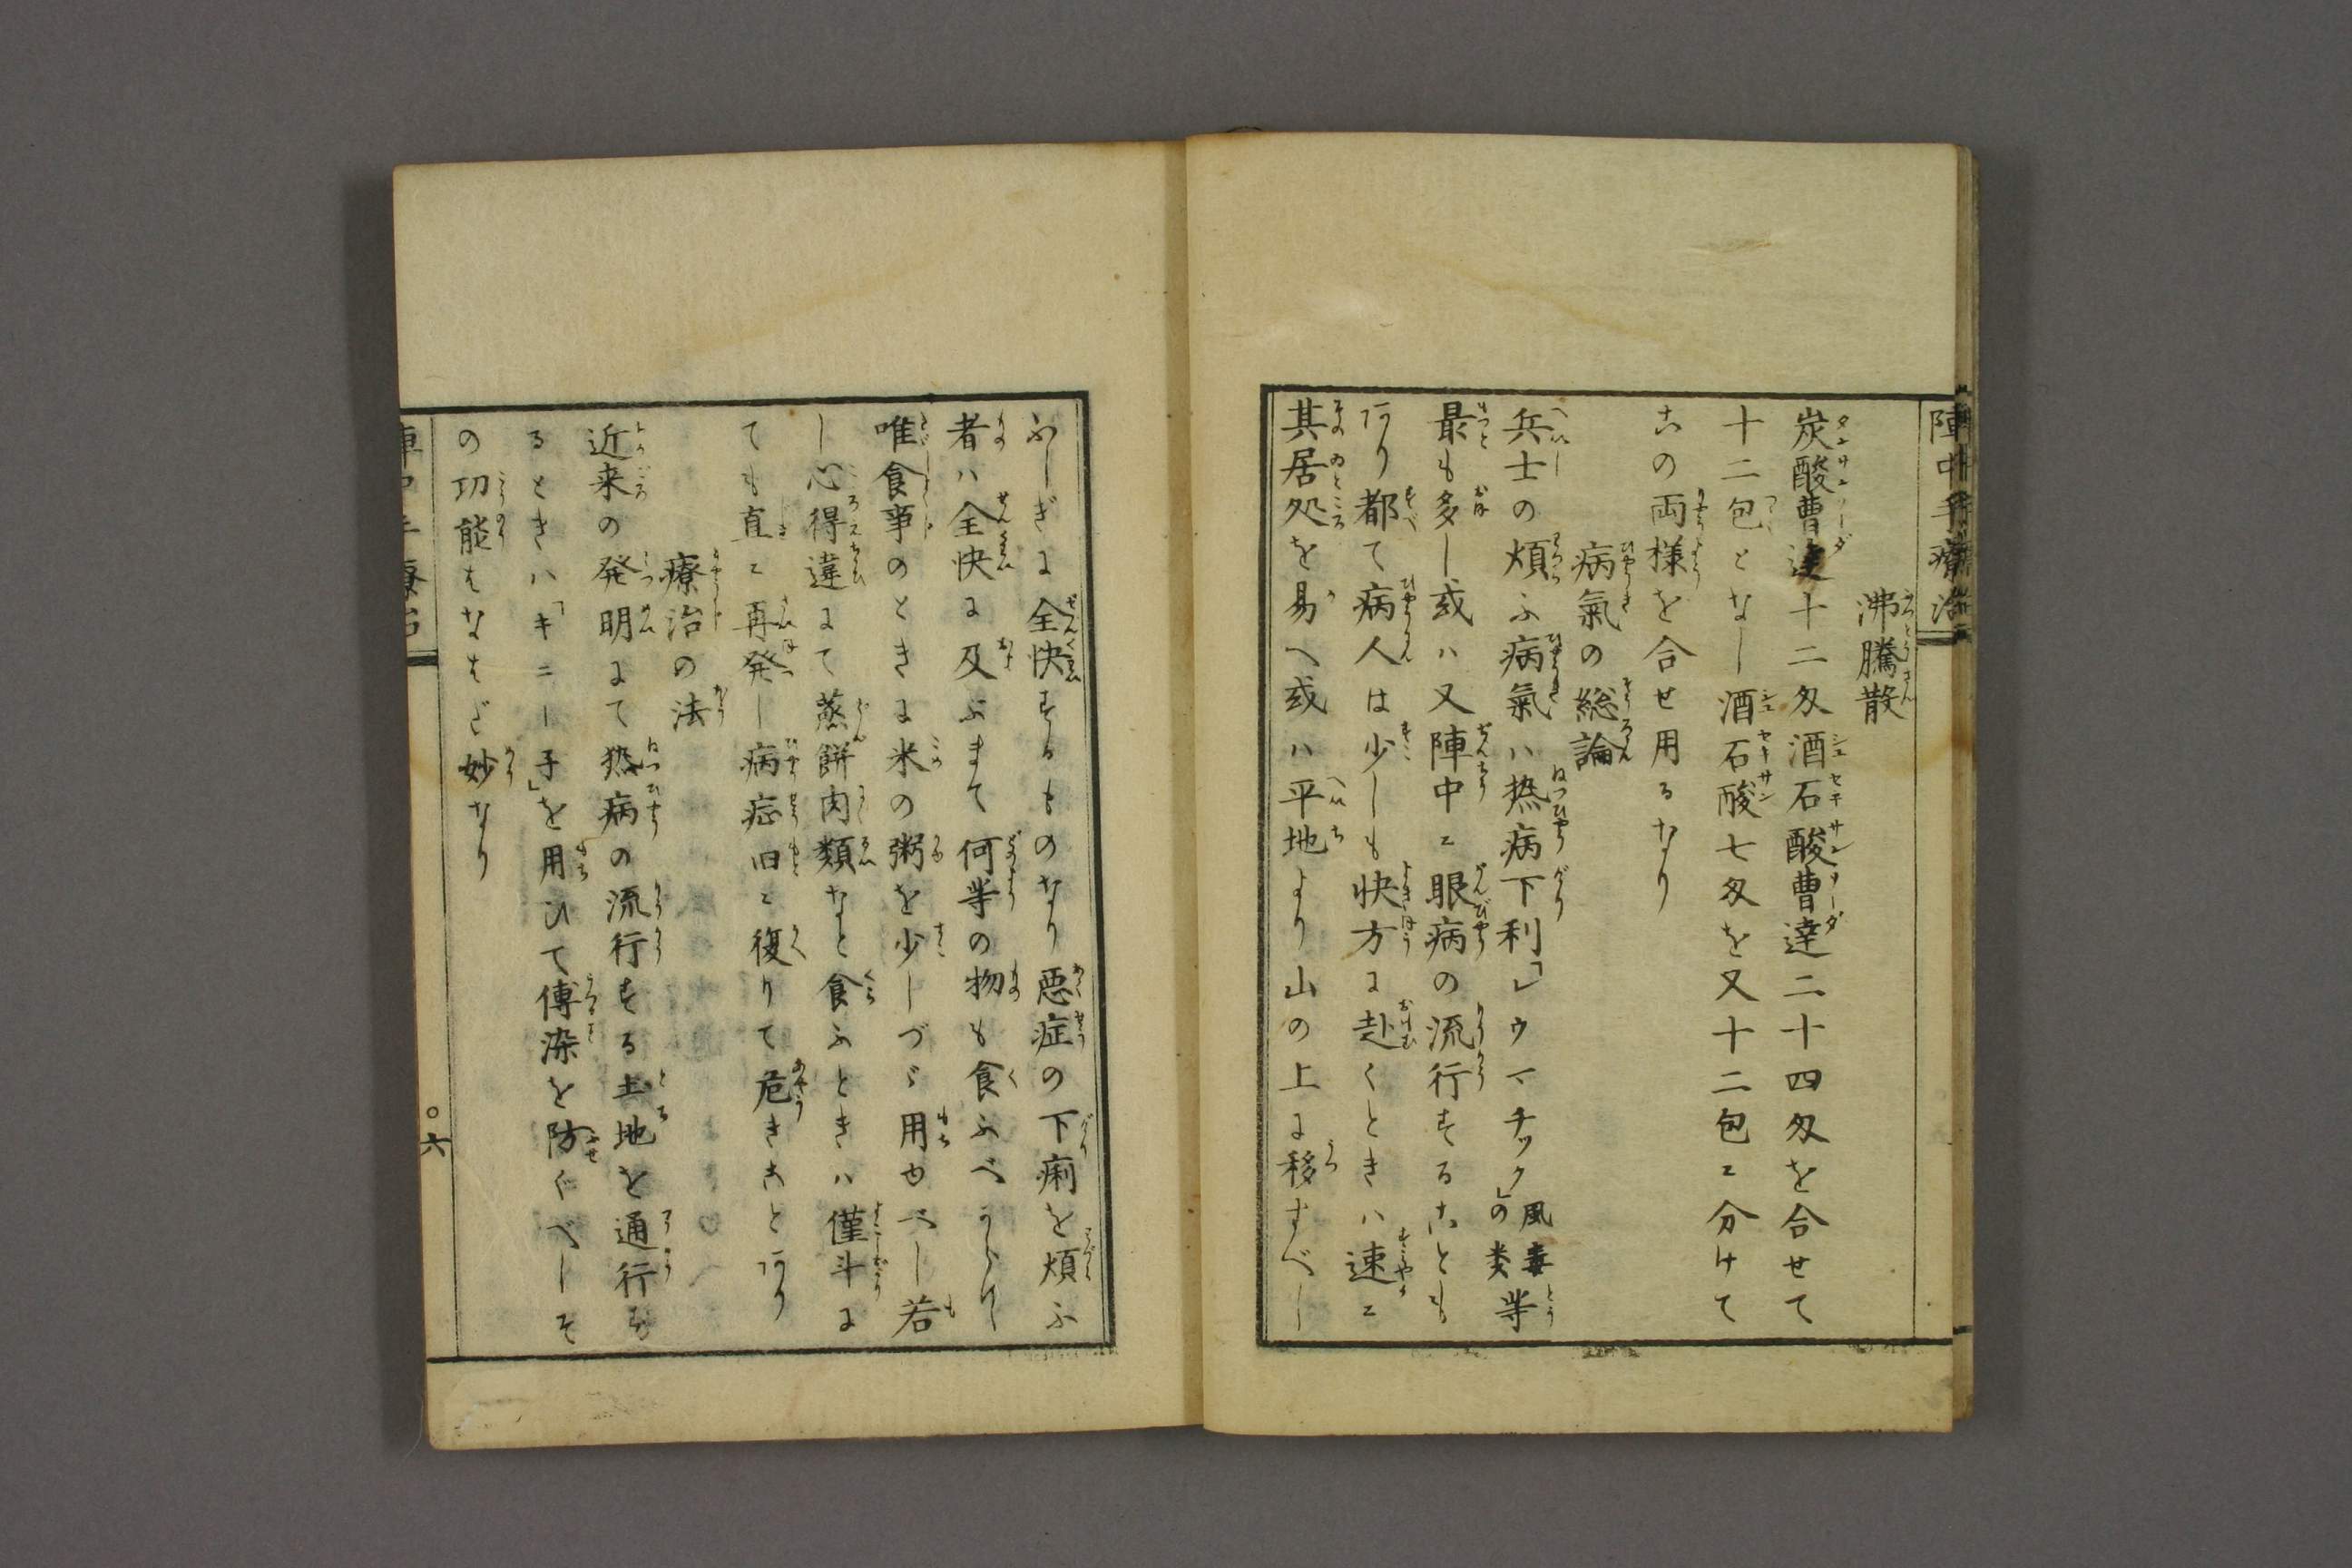 陣中手療治
沸騰散
炭酸曹達十二匁酒石酸曹達二十四匁を合せて
十二包となし酒石酸七匁を又十二包に分けて
この両様を合せ用るなり
病氣の総論
兵士の煩ふ病氣ハ熱病下利「レウマチック」の类風毒等
最も多し或ハ又陣中に眼病の流行することも
あり都て病人は少しも快方に赴くときハ速に
其居処を易へ或ハ平地より山の上に移すべし
ふしぎに全快するものなり悪症の下痢を煩ふ
者ハ全快に及ぶまて何等の物も食ふべからず
唯食事のときに米の粥を少しづゝ用ゆべし若
し心得違にて蒸餅肉類なと食ふときハ僅斗に
ても直に再発し病症旧に復りて危きことあり
療治の法
近来の発明にて熱病の流行する土地を通行す
るときハ「キニー子」を用ひて傳染を防ぐべしそ
の功能はなはだ妙なり
陣中手療治
〇六